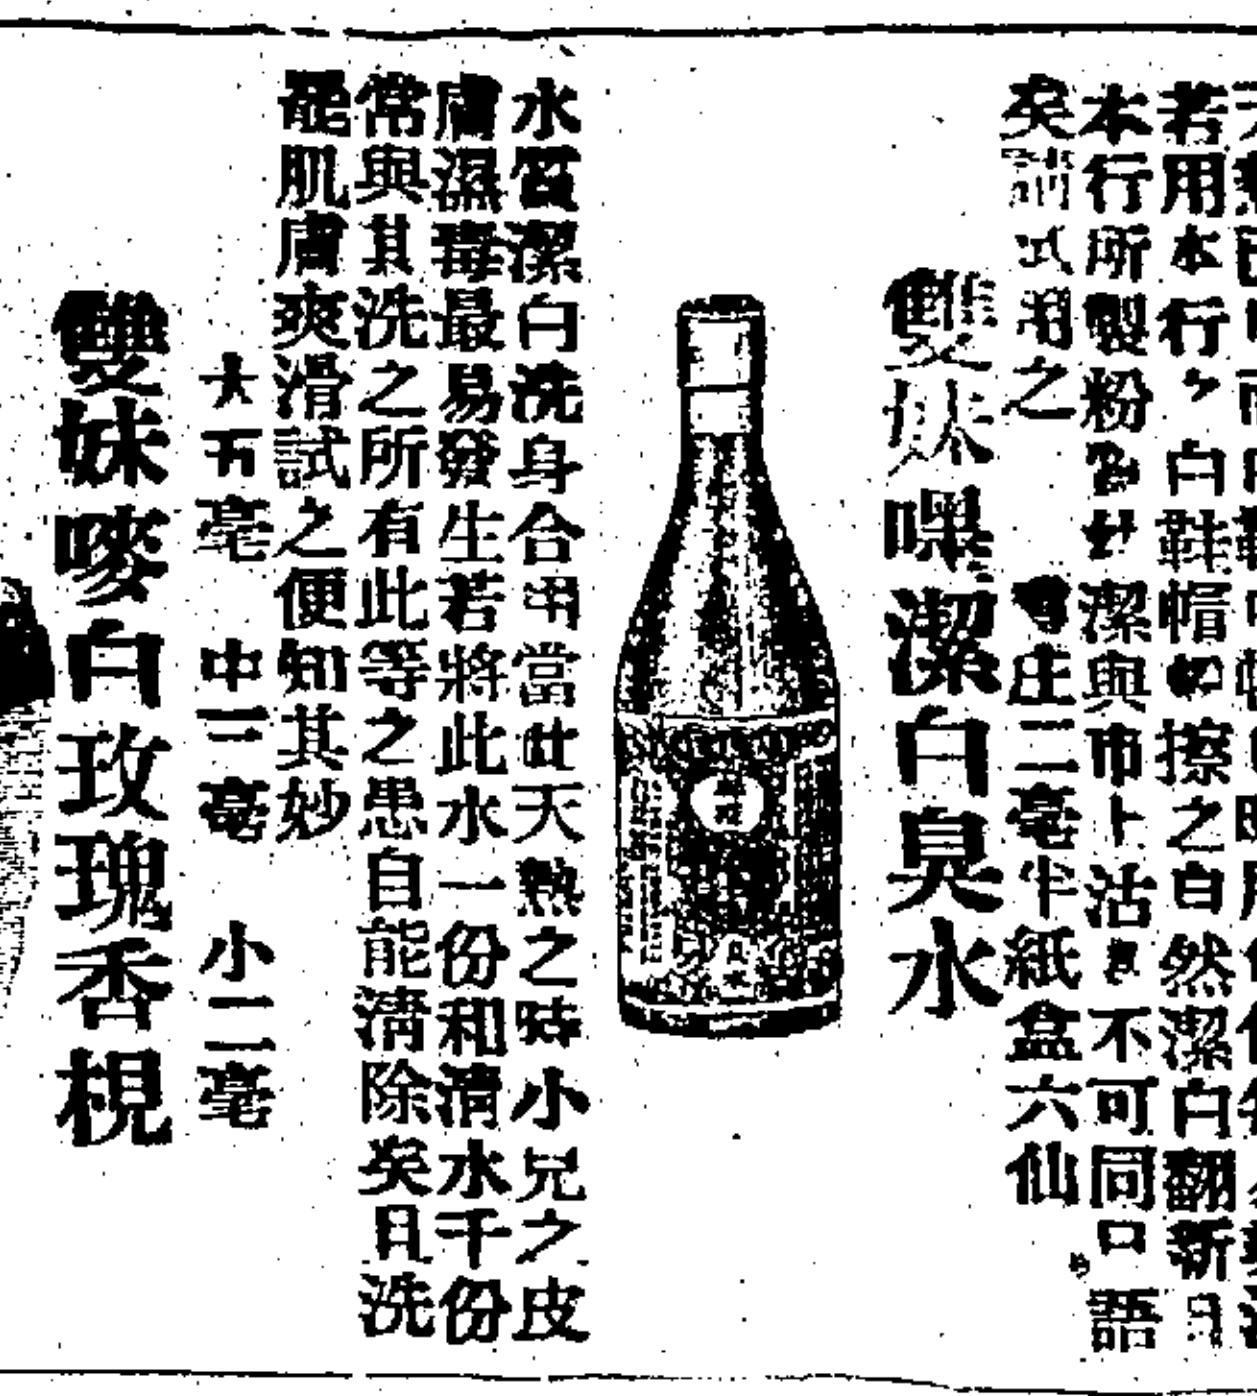 若用本行白鞋帽擦之自然潔白翻新
本行所製粉潔與市上沽不可同口語
矣請試用之 庄二毫半紙盒六仙
雙妹嘿潔白臭水
水質潔白洗身合用當此天熱之時小兒之皮
膚濕毒最易發生若將此水一份和清水千份
常與其洗之所有此等之患自能清除矣且洗
罷肌膚爽滑試之便知其妙
大五毫 中三毫 小二毫
雙妹嘜白玫瑰香梘